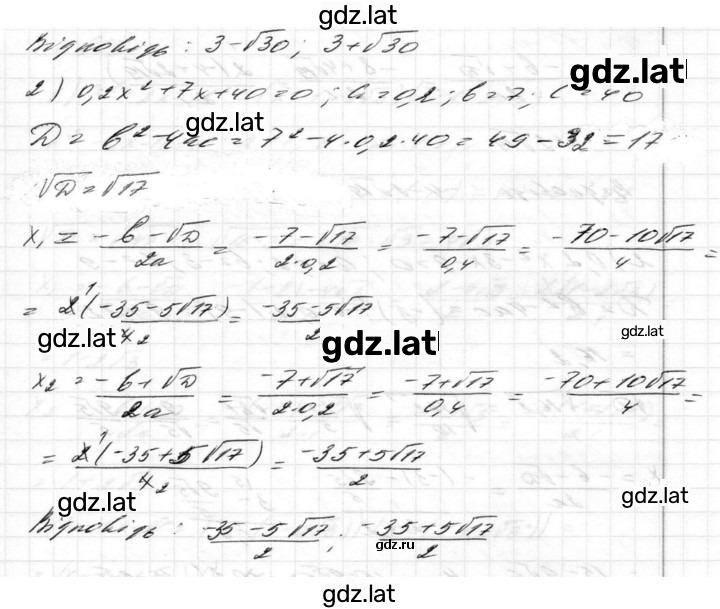 gdz.lat
Відповідь: 3-√30; 3+√30
gdz.lat
2) 0,2x²+7x+40=0; a=0,2; b=7; c=40
gdz.lat
D = b²-4ac = 7²-4·0,2·40 = 49-32=17
√D=√17
x₁ = (-b-√D)/2a = (-7-√17)/2·0,2 = (-7-√17)/0,4 = (-70-10√17)/4 =
= 2¹(-35-5√17)/4₂ = (-35-5√17)/2
gdz.lat gdz.lat gdz.lat
x₂ = (-b+√D)/2a = (-7+√17)/2·0,2 = (-7+√17)/0,4 = (-70+10√17)/4 =
= 2¹(-35+5√17)/4₂ = (-35+5√17)/2
gdz.lat gdz.lat
Відповідь: (-35-5√17)/2; (-35+5√17)/2
gdz.ru
gdz.lat